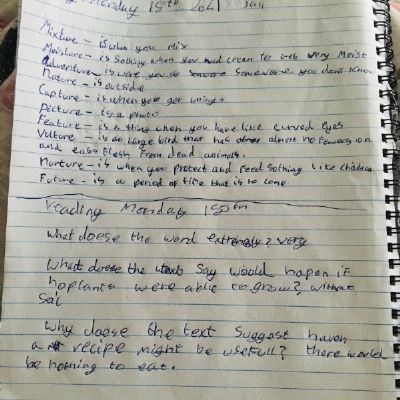 Monday 18th
Mixture - is when you mix
Moisture - is Sothing when you
Adventure - is were you go Somewere you dont know
Nature - is outside
Capture - is when you got
Picture - is a photo
Feature - is a thing when you have like curved eyes
Vulture - is an large bird that has almost no Feathers on
and eats Flesh From dead animals.
Nurture - is when you protect and Feed Sothing Like children
Future - is a period of time that is to come.
reading Monday 18th
What doose the word extremely? very
What doese the text Say would hapen if
noplants were able to grow? without
Why doese the text Suggest haven
a recipe might be usefull? there would
be nothing to eat.